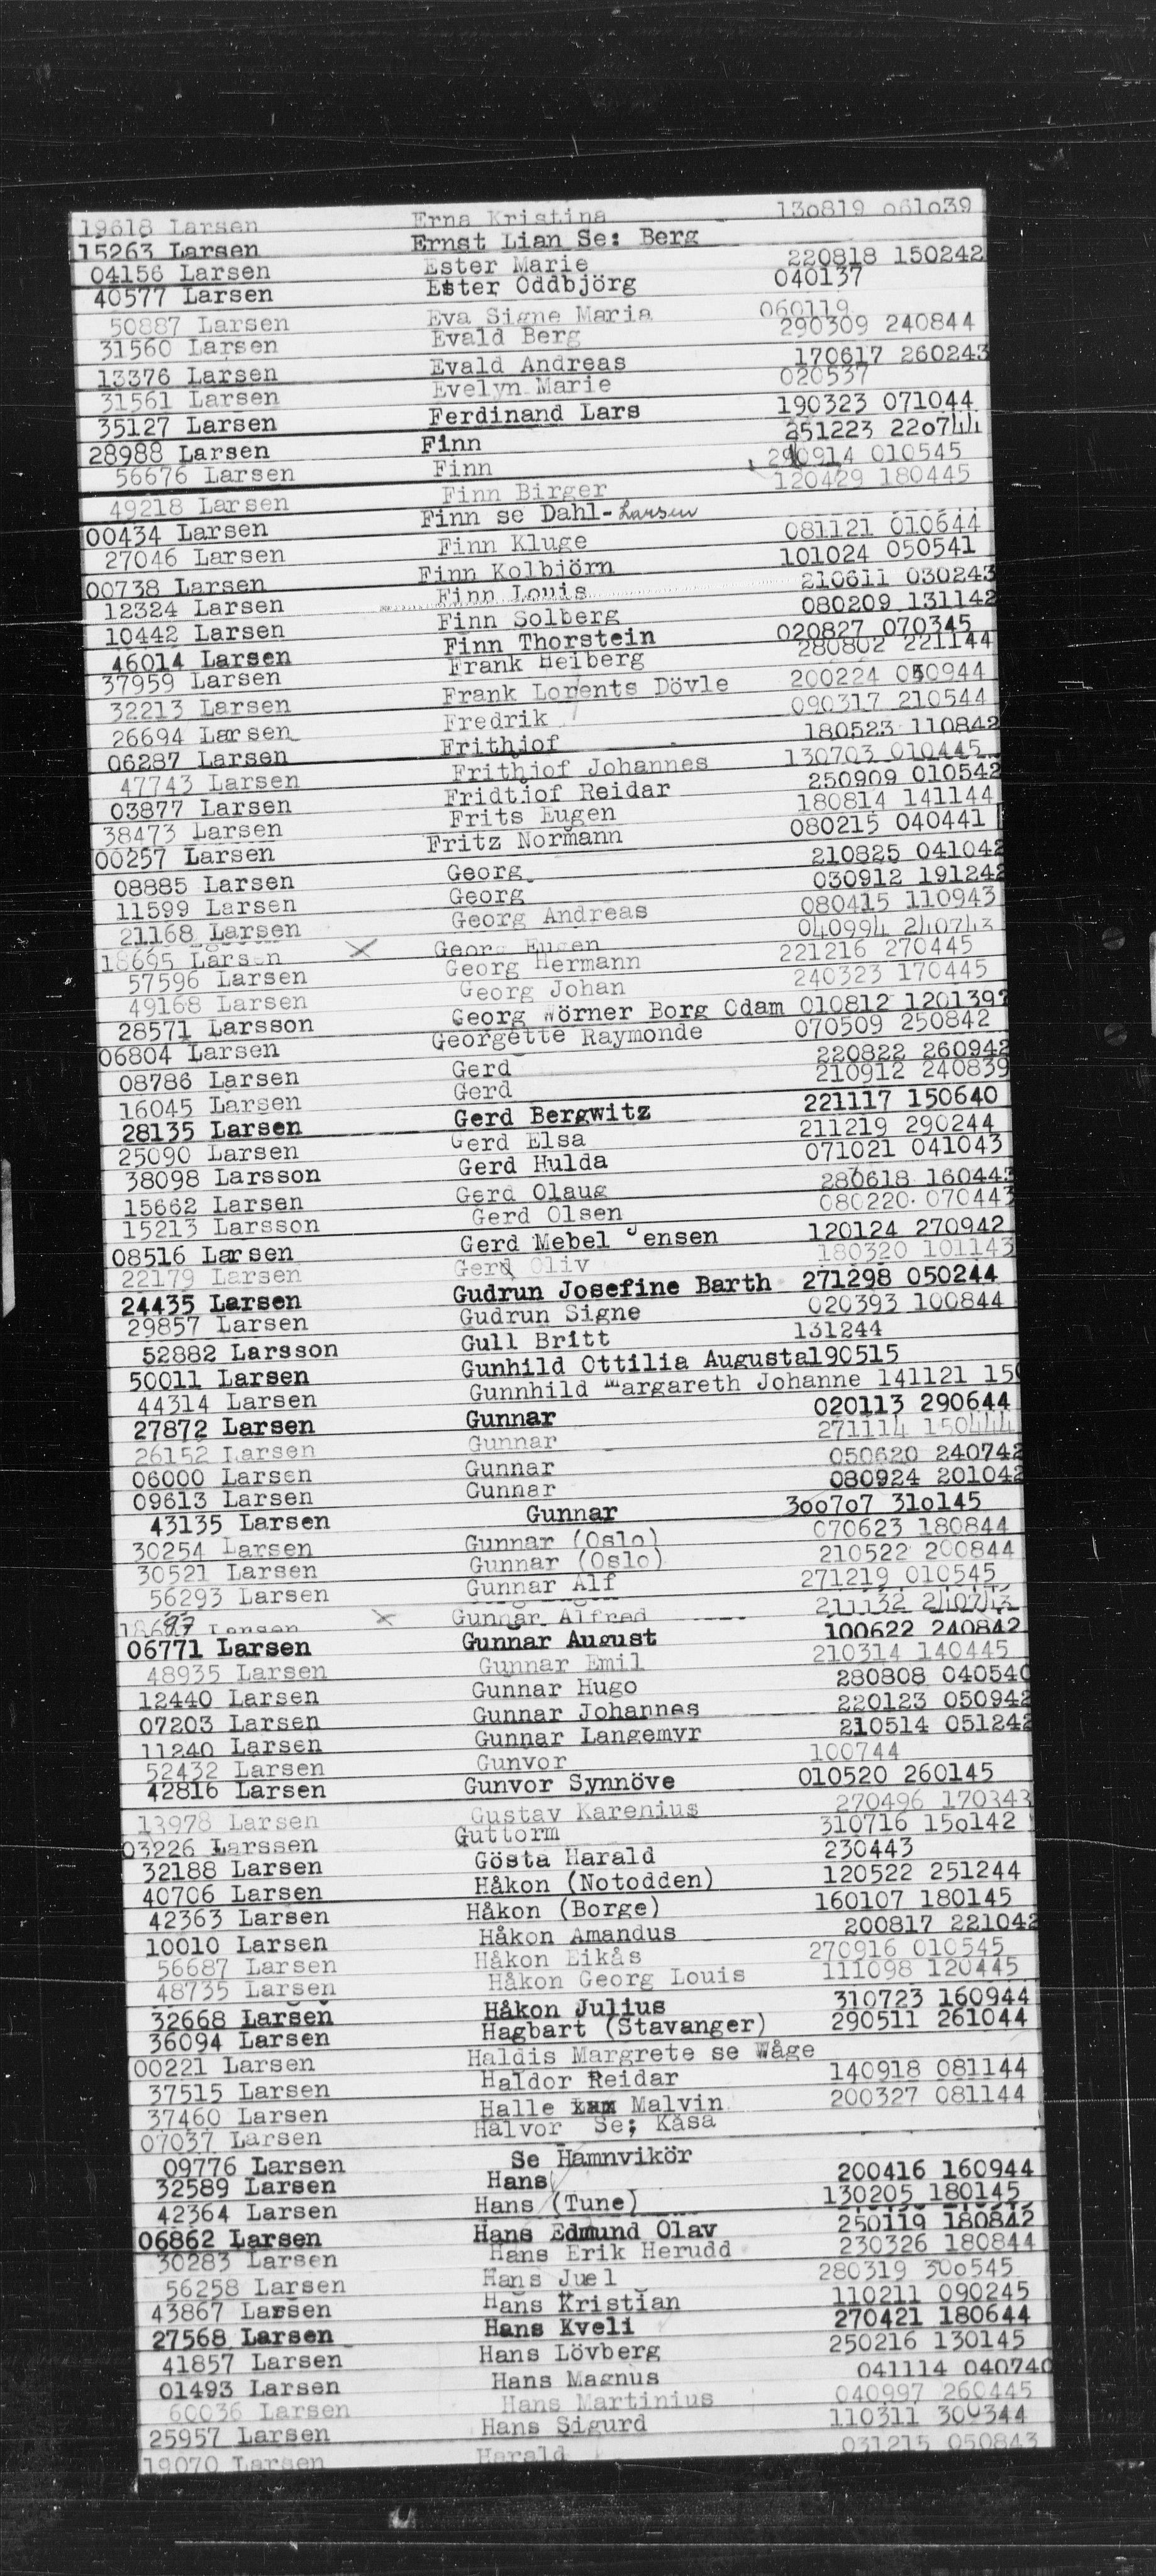 19618 Larsen Erna Kristina 130819 061039
15263 Larsen Ernst Lian Se: Berg
04156 Larsen Ester Marie 220818 150242
40577 Larsen Ester Oddbjörg 040137
50887 Larsen Eva Signe Marie 060119
31560 Larsen Evald Berg 290309 240844
13376 Larsen Evald Andreas 170617 260243
31561 Larsen Evelyn Marie 020537
35127 Larsen Ferdinand Lars 190323 071044
28988 Larsen Finn 251223 220744
56676 Larsen Finn 290914 010545
49218 Larsen Finn Birger 120429 180445
00434 Larsen Finn se Dahl-Larsen
27046 Larsen Finn Kluge 081121 010644
00738 Larsen Finn Kolbjörn 101024 050541
12324 Larsen Finn Louis 210611 030243
10442 Larsen Finn Solberg 080209 131142
46014 Larsen Finn Thorstein 020827 070345
37959 Larsen Frank Heiberg 280802 221144
32213 Larsen Frank Lorents Dövle 200224 050944
26694 Larsen Fredrik 090317 210544
06287 Larsen Frithjof 180523 110842
47743 Larsen Frithjof Johannes 130703 010445
03877 Larsen Fridtjof Reidar 250909 010542
38473 Larsen Frits Eugen 180814 141144
00257 Larsen Fritz Normann 080215 040441
08885 Larsen Georg 210825 041042
11599 Larsen Georg 030912 191242
21168 Larsen Georg Andreas 080415 110943
18695 Larsen X Georg Eugen 040994 240743
57596 Larsen Georg Hermann 221216 270445
49168 Larsen Georg Johan 240323 170445
28571 Larsson Georg Wörner Borg Odam 010812 120139?
06804 Larsen Georgette Raymonde 070509 250842
08786 Larsen Gerd 220822 260942
16045 Larsen Gerd 210912 240839
28135 Larsen Gerd Bergwitz 221117 150640
25090 Larsen Gerd Elsa 211219 290244
38098 Larsson Gerd Hulda 071021 041043
15662 Larsen Gerd Olaug 280618 160443
15213 Larsson Gerd Olsen 080220 070443
08516 Larsen Gerd Mebel Jensen 120124 270942
22179 Larsen Gerd Oliv 180320 101143
24435 Larsen Gudrun Josefine Barth 271298 050244
29857 Larsen Gudrun Signe 020393 100844
52882 Larsson Gull Britt 131244
50011 Larsen Gunhild Ottilia Augusta190515
44314 Larsen Gunnhild Margareth Johanne 141121 150
27872 Larsen Gunnar 020113 290644
26152 Larsen Gunnar 271114 150444
06000 Larsen Gunnar 050620 240742
09613 Larsen Gunnar 080924 201042
43135 Larsen Gunnar 300707 310145
30254 Larsen Gunnar (Oslo) 070623 180844
30521 Larsen Gunnar (Oslo) 210522 200844
56293 Larsen Gunnar Alf 271219 010545
18697 Larsen X Gunnar Alfred 211132 240743
06771 Larsen Gunnar August 100622 240842
48935 Larsen Gunnar Emil 210314 140445
12440 Larsen Gunnar Hugo 280808 040540
07203 Larsen Gunnar Johannes 220123 050942
11240 Larsen Gunnar Langemyr 210514 051242
52432 Larsen Gunvor 100744
42816 Larsen Gunvor Synnöve 010520 260145
13978 Larsen Gustav Karenius 270496 170343
03226 Larssen Guttorm 310716 150142
32188 Larsen Gösta Harald 230443
40706 Larsen Håkon (Notodden) 120522 251244
42363 Larsen Håkon (Borge) 160107 180145
10010 Larsen Håkon Amandus 200817 221042
56687 Larsen Håkon Eikås 270916 010545
48735 Larsen Håkon Georg Louis 111098 120445
32668 Larsen Håkon Julius 310723 160944
36094 Larsen Hagbart (Stavanger) 290511 261044
00221 Larsen Haldis Margrete se Wåge
37515 Larsen Haldor Reidar 140918 081144
37460 Larsen Halle Malvin 200327 081144
07037 Larsen Halvor Se; Kåsa
09776 Larsen Se Hamnvikör
32589 Larsen Hans 200416 160944
42364 Larsen Hans (Tune) 130205 180145
06862 Larsen Hans Edmund Olav 250119 180842
30283 Larsen Hans Erik Herudd 230326 180844
56258 Larsen Hans Juel 280319 300545
43867 Larsen Hans Kristian 110211 090245
27568 Larsen Hans Kveli 270421 180644
41857 Larsen Hans Lövberg 250216 130145
01493 Larsen Hans Magnus 041114 040740
60036 Larsen Hans Martinius 040997 260445
25957 Larsen Hans Sigurd 110311 300344
19070 Larsen Harald 031215 050843